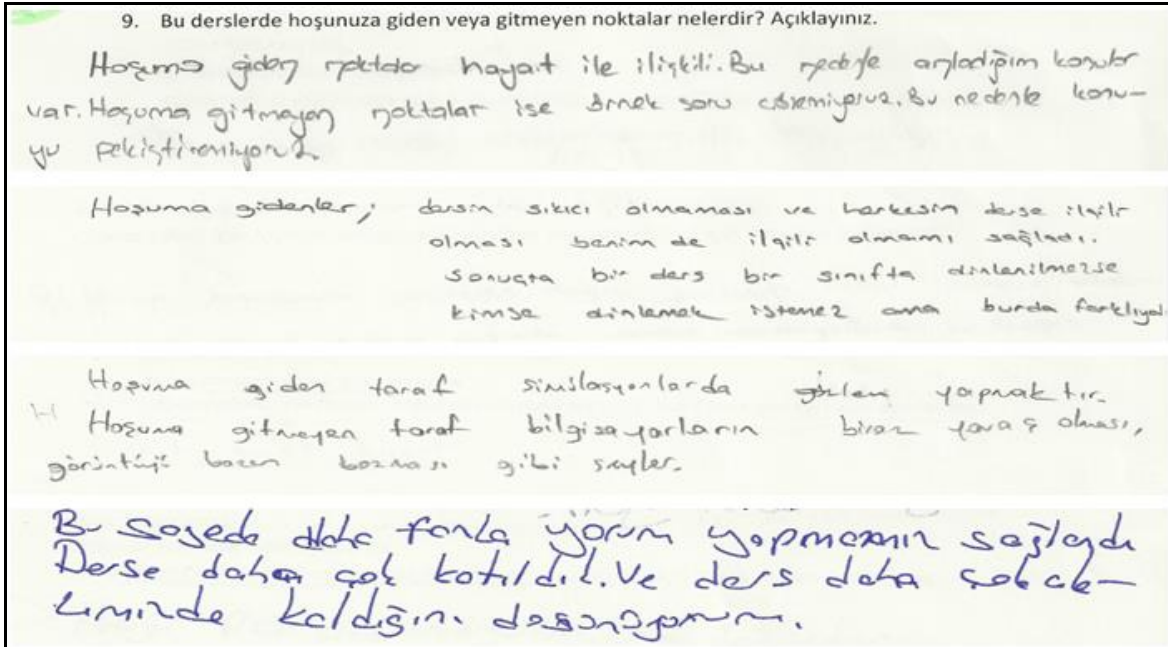 9. Bu derslerde hoşunuza giden veya gitmeyen noktalar nelerdir? Açıklayınız.
Hoşuma giden noktalar hayat ile ilişkili. Bu nedenle anladığım konular
var. Hoşuma gitmeyen noktalar ise örnek soru çözemiyoruz. Bu nedenle konu-
yu pekiştiremiyoruz.
Hoşuma gidenler; dersin sıkıcı olmaması ve herkesin derse ilgili
olması benim de ilgili olmamı sağladı.
Sonuçta bir ders bir sınıfta dinlenilmezse
kimse dinlemek istemez ama burda farklıydı.
Hoşuma giden taraf simülasyonlarda gözlem yapmaktır.
Hoşuma gitmeyen taraf bilgisayarların biraz yavaş olması,
görüntüyü bazen bozması gibi şeyler.
Bu sayede daha fazla yorum yapmamızı sağladı
Derse daha çok katıldık. Ve ders daha çok ak-
lımızda kaldığını düşünüyorum.